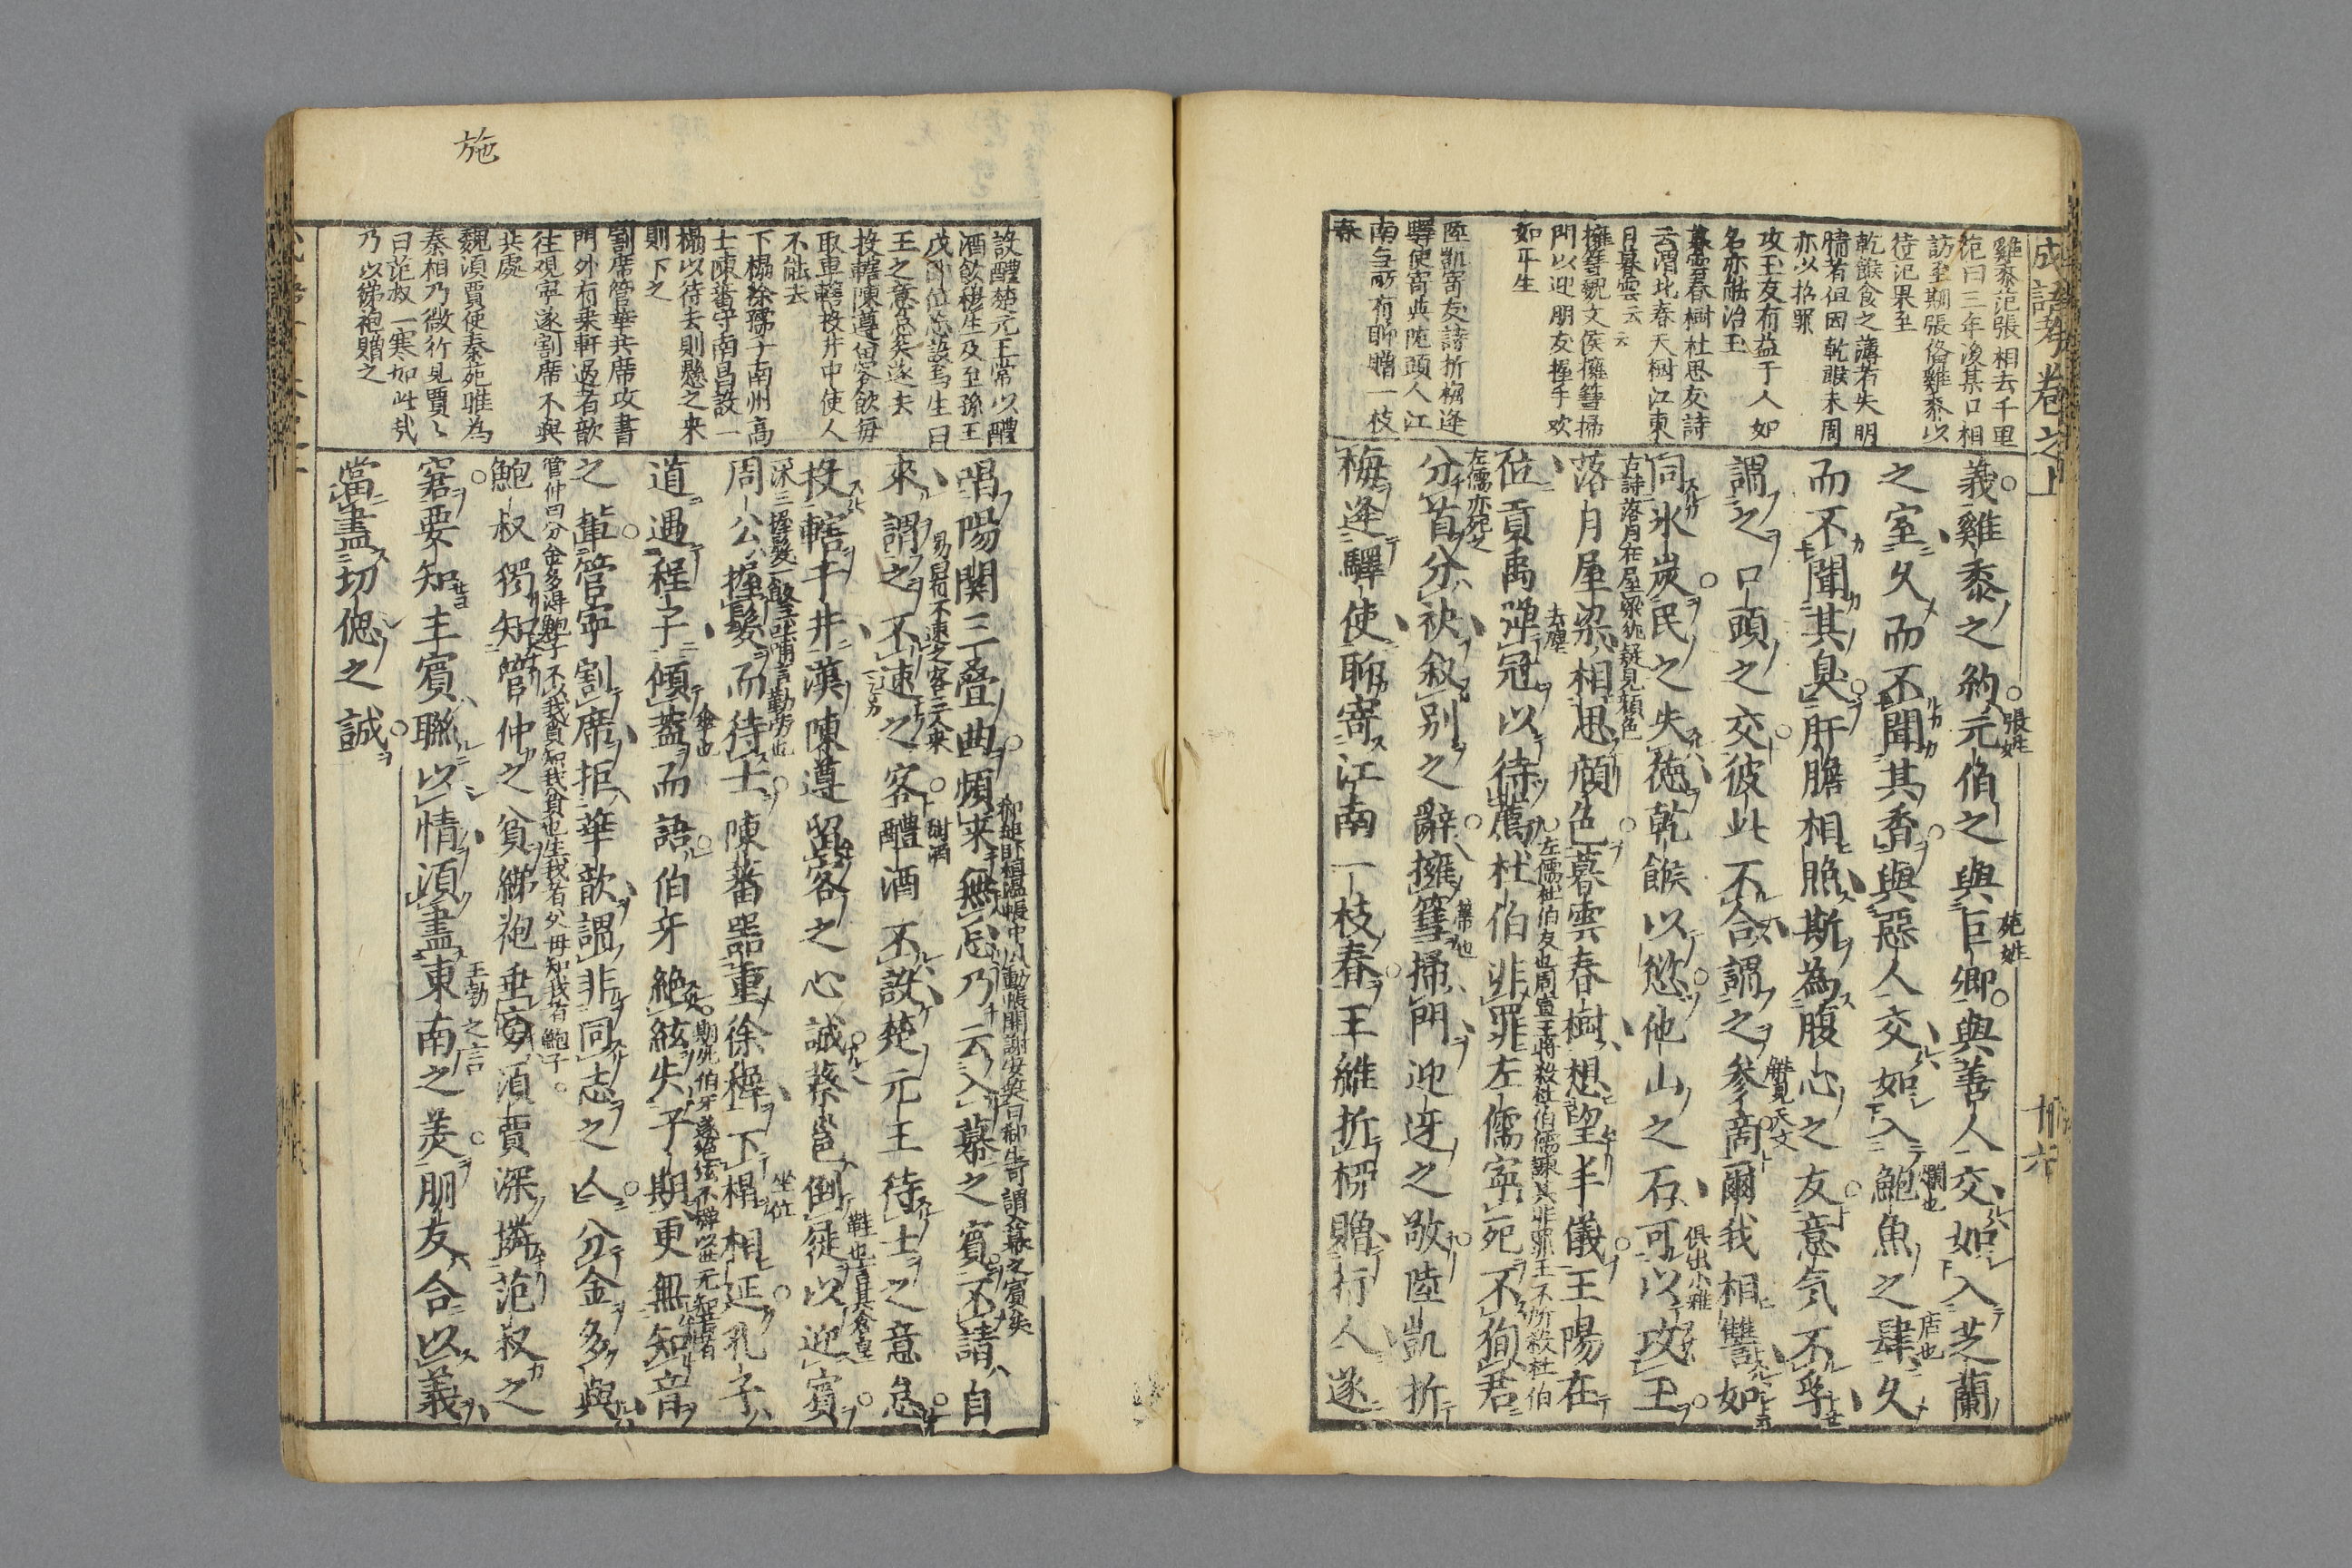 成語考卷之上
雞黍范張相去千里
范曰三年後某日相
訪至期張俻雞黍以
待范果至
乾餱食之薄者失明
情者但因乾餱未周
亦以招罪
攻玉友有益于人如
名亦能治玉
暮雲春樹杜思友詩
云渭北春天樹江東
日暮雲云云
擁篲魏文侯擁篲掃
門以迎朋友握手欢
如平生
陸凱寄友詩折梅逢
驛使寄與隴頭人江
南無所有聊贈一枝
春
義雞黍之約元伯之與巨卿與善人交如入芝蘭
張姓
范姓
之室久而不聞其香與惡人交如入鮑魚之肆久
店也
而不聞其臭肝膽相照斯為腹心之友意気不孚
謂之口頭之交彼此不合謂之參商爾我相讐如
觧見天文
同氷炭民之失德乾餱以愆他山之石可以攻玉
俱出小雅
古詩落月在屋梁犹疑見顏色
落月屋梁相思顔色暮雲春樹想望丰儀王陽在
位貢禹彈冠以待薦杜伯非罪左儒寧死不狥君
去塵
左儒杜伯友也周宣王將殺杜伯儒諫其非罪王不听殺杜伯
左儒亦死之
分首分袂叙別之辭擁篲掃門迎迓之敬陸凱折
箒也
梅逢驛使聊寄江南一枝春王維折柳贈行人遂
十六
施
設醴楚元王常以醴
酒飲穆生及至孫王
戊即位忘設焉生曰
王之意怠矣遂去
投轄陳遵留客飲每
取車轄投井中使人
不能去
下榻徐孺子南州高
士陳蕃守南昌設一
榻以待去則懸之来
則下之
割席管華共席攻書
門外有乘軒過者歆
往观寧遂割席不與
共處
魏湏賈使秦范睢為
秦相乃微行見賈賈
曰范叔一寒如此哉
乃以綈袍贈之
唱陽関三疊曲頻來無忌乃云入幕之賓不請自
來謂之不速之客醴酒不設楚元王待士之意怠
易曰有不速之客三人来
甜酒
投轄于井漢陳遵留客之心誠蔡邕倒屣以迎賓
周公握髮而待士陳蕃器重徐穉下榻相延孔子
坐位
道遇程子傾蓋而語伯牙絶絃失子期更無知音
傘也
之軰管寧割席拒華歆謂非同志之人分金多與
鮑叔獨知管仲之貧綈袍垂愛湏賈深憐范叔之
窘要知主賓聯以情湏盡東南之美朋友合以義
王勃之言
當盡切偲之誠